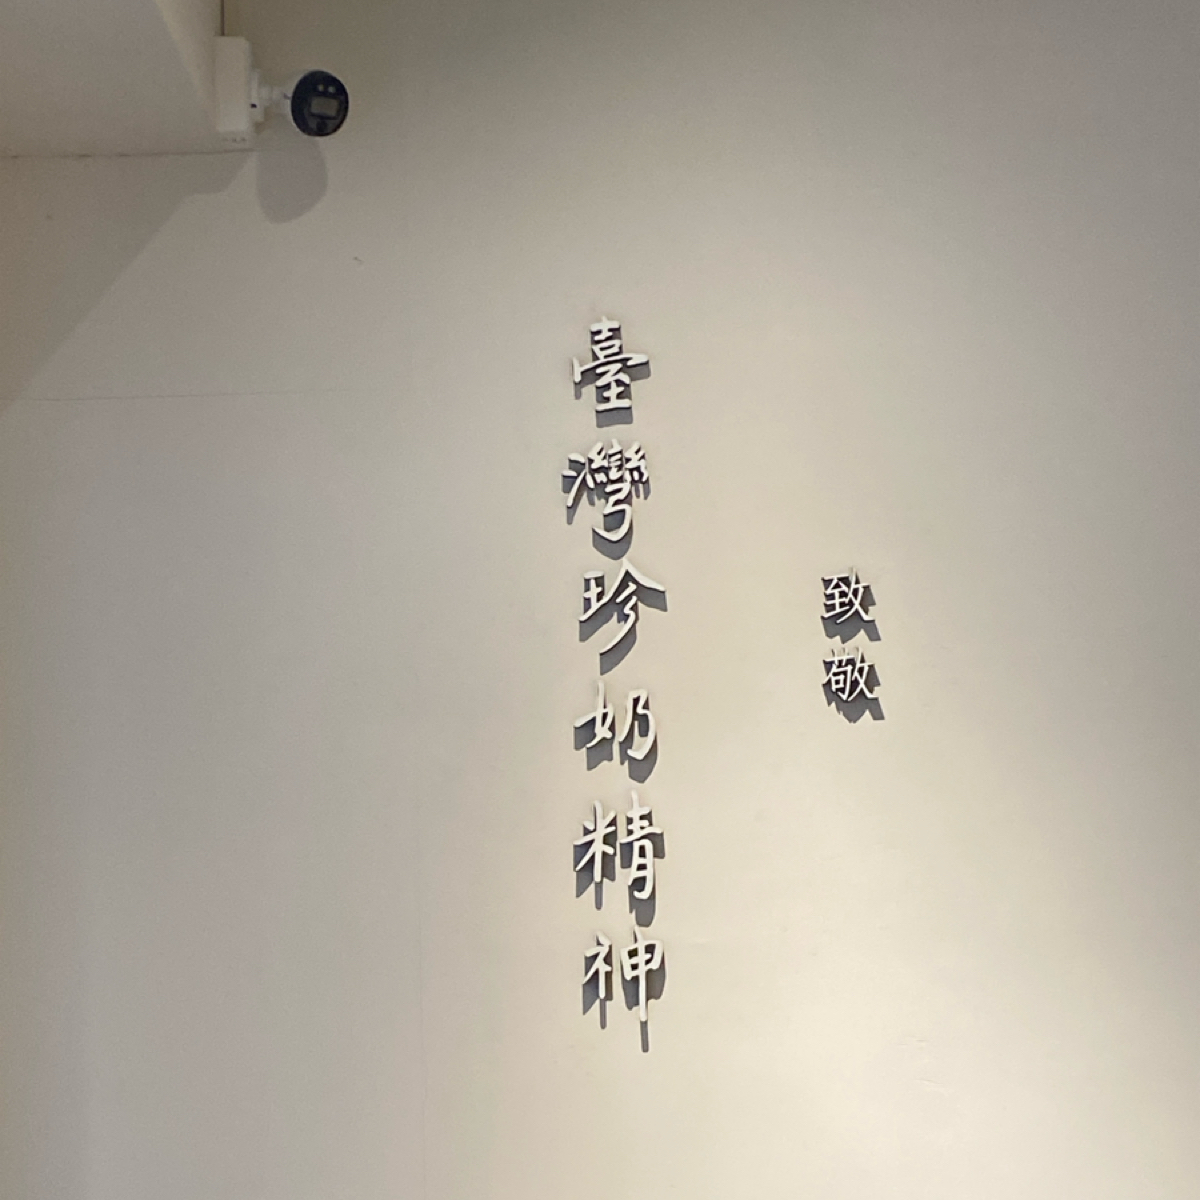 致敬
臺灣珍奶精神